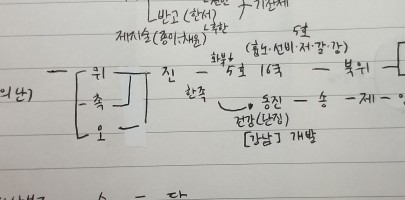 반고 (한서)
기전체
제지술(종이.채륜) 후한
5호
화북
(흉노.선비.저.갈.강)
의난)
- 위 진 - 5호 16국 - 북위
촉 한족 동진 - 송 - 제 -
오 건강(난징)
[강남] 개발